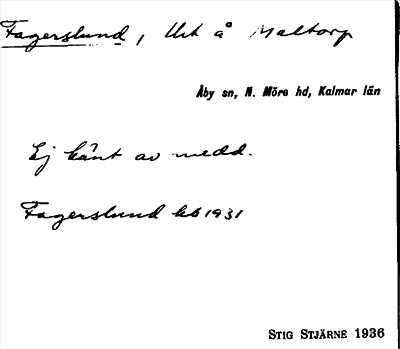 Fagerslund, Urt å Maltorp
Åby sn, N. Möre hd, Kalmar län
Ej känt av medd.
Fagerslund kb 1931
STIG STJÄRNE 1936